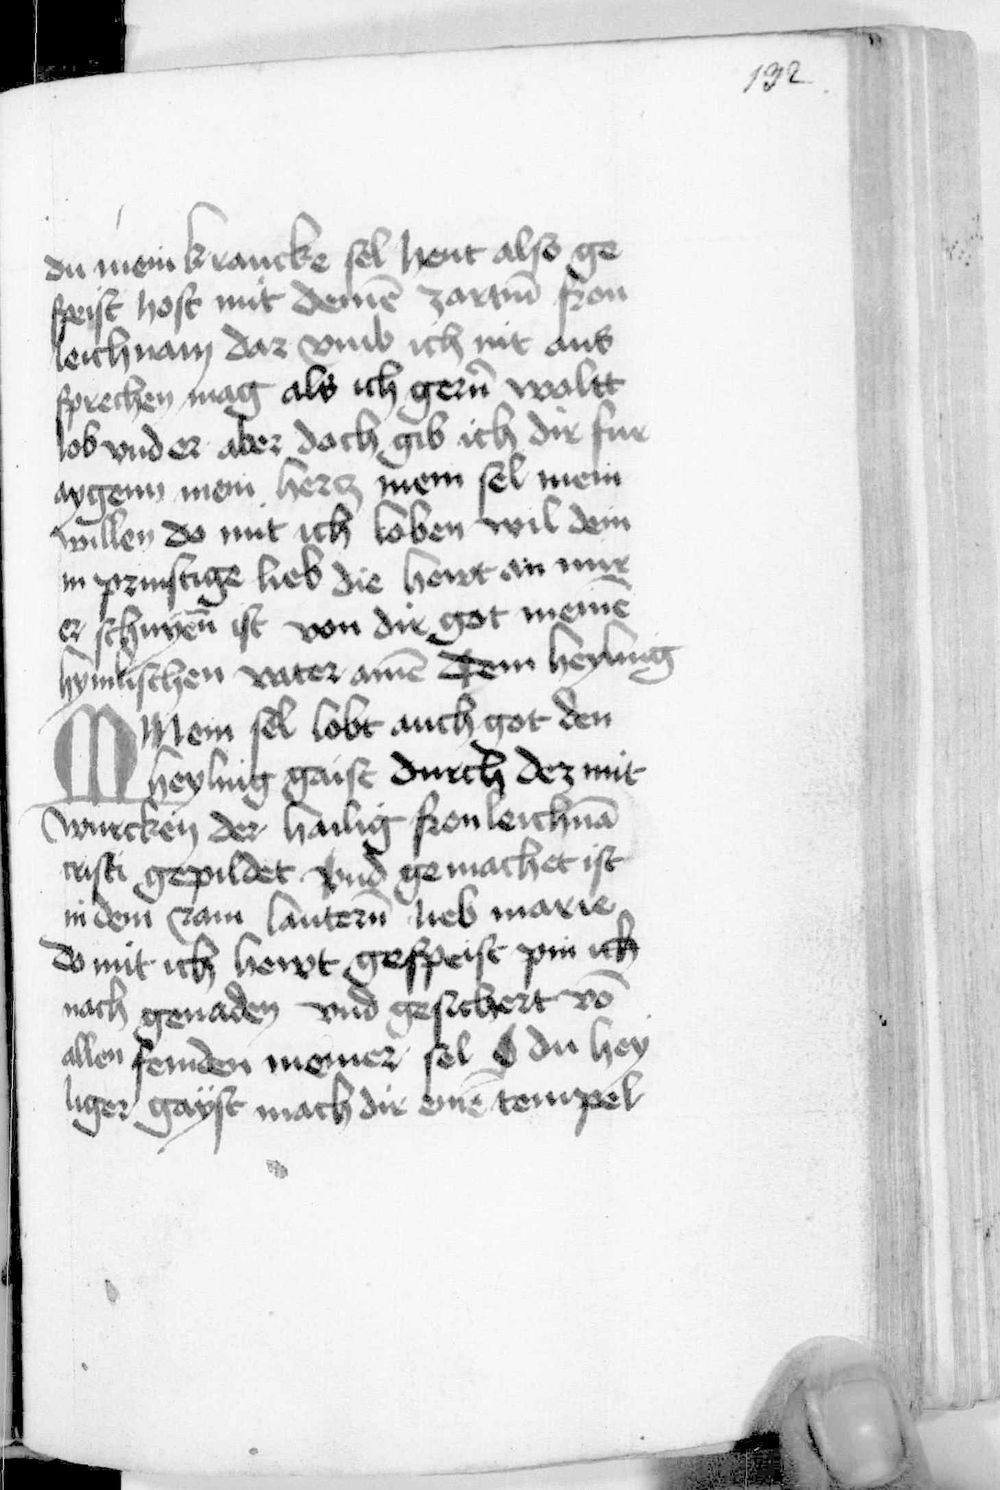 132
du mein krancke sel heut also ge
speist host mit deinē zartm̄ fron
leichnam dar vmb ich nit aus
sprechen mag als ich gern̄ woltt
lob vnd er aber doch gib ich dir fur
aygenn mein hercz mein sel mein
willen do mit ich loben wil dein
in prinstige lieb die hewt an mir
er schinen̄ ist von dir got meinē
hymlischen vater amē Dem heyling
Mein sel lobt auch got den
heyling gaist durch dez mit
wurcken der hailig fronleichnā
cristi gepildet vnd gemachet ist
in dem rain lautern̄ leib marie
do mit ich hewt gespeist pin ich
nach genaden vnd gesichert vō
allen feinden meiner sel O du hey
liger gayst mach dir einē tempel